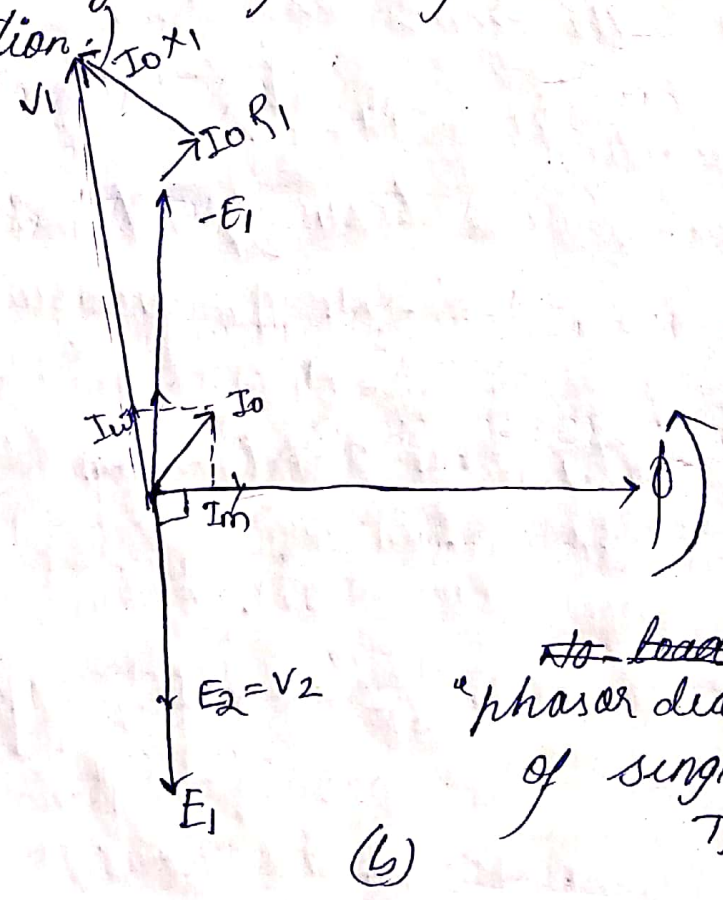 tion.)
I0 X1
V1
I0.R1
-E1
Iw
I0
Im
ϕ
E2=V2
E1
"phasor
of
(b)